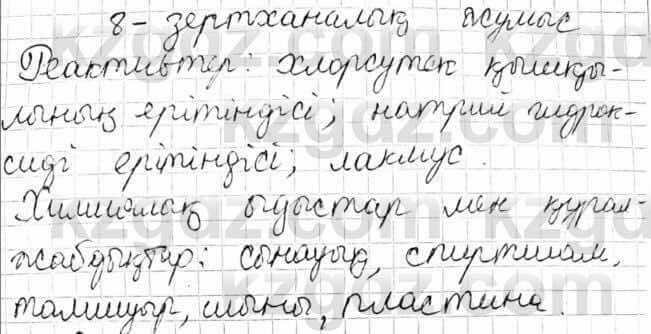 8- зертханалық жұмыс
Реактивтер: хлорсутек қышқы-
лының ерітіндісі; натрий гидрок-
сиді ерітіндісі; лакмус.
Химиялық ыдыстар мен құрал-
жабдықтар: сынауық, спиртшам,
тамшуыр, шыны, пластина.